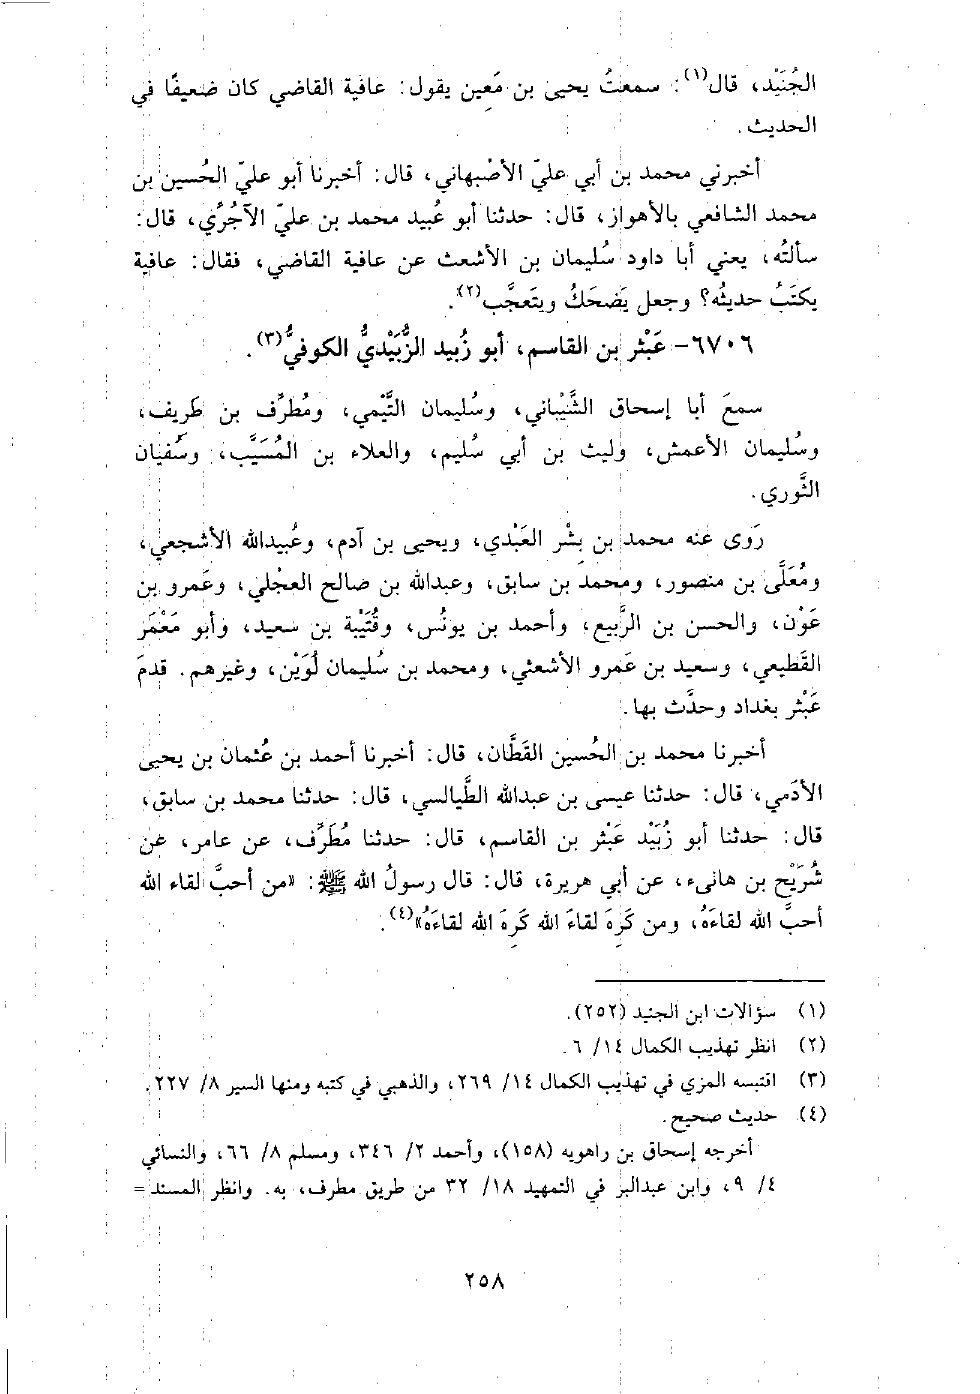 الجُنَيْد، قال(١): سمعتُ يحيى بن مَعِين يقول: عافية القاضي كان ضعيفًا في
الحديث.
أخبرني محمد بن أبي عليّ الأصْبهاني، قال: أخبرنا أبو عليّ الحُسين بن
محمد الشافعي بالأهواز، قال: حدثنا أبو عُبيد محمد بن عليّ الآجُرِّي، قال:
سألتُه، يعني أبا داود سُليمان بن الأشعث عن عافية القاضي، فقال: عافية
يكتَبُ حديثُه؟ وجعل يَضحَكُ ويتعجَّب(٢).
٦٧٠٦- عَبْثر بن القاسم، أبو زُبيد الزُّبَيْديُّ الكوفيُّ(٣).
سمعَ أبا إسحاق الشَّيْباني، وسُليمان التَّيْمي، ومُطرِّف بن طَريف،
وسُليمان الأعمش، وليث بن أبي سُليم، والعلاء بن المُسَيَّب، وسُفيان
الثَّوري.
رَوى عنه محمد بن بِشْر العَبْدي، ويحيى بن آدم، وعُبيدالله الأشجعي،
ومُعَلَّى بن منصور، ومحمد بن سابق، وعبدالله بن صالح العجلي، وعَمرو بن
عَوْن، والحسن بن الرَّبيع، وأحمد بن يونُس، وقُتَيْبة بن سَعيد، وأبو مَعْمَر
القَطيعي، وسعيد بن عَمرو الأشعثي، ومحمد بن سُليمان لُوَيْن، وغيرهم. قدمَ
عَبْثر بغداد وحدَّث بها.
أخبرنا محمد بن الحُسين القَطَّان، قال: أخبرنا أحمد بن عُثمان بن يحيى
الأدَمي، قال: حدثنا عيسى بن عبدالله الطَّيالسي، قال: حدثنا محمد بن سابق،
قال: حدثنا أبو زُبَيْد عَبْثر بن القاسم، قال: حدثنا مُطَرِّف، عن عامر، عن
شُرَيْح بن هانىء، عن أبي هريرة، قال: قال رسولُ الله ﷺ: «من أحبَّ لقاء الله
أحبَّ الله لقاءَهُ، ومن كَرِهَ لقاءَ الله كَرِهَ الله لقاءَهُ»(٤).
(١) سؤالات ابن الجنيد (٢٥٢).
(٢) انظر تهذيب الكمال ١٤/ ٦.
(٣) اقتبسه المزي في تهذيب الكمال ١٤/ ٢٦٩، والذهبي في كتبه ومنها السير ٨/ ٢٢٧.
(٤) حديث صحيح.
أخرجه إسحاق بن راهويه (١٥٨)، وأحمد ٢/ ٣٤٦، ومسلم ٨/ ٦٦، والنسائي
٤/ ٩، وابن عبدالبر في التمهيد ١٨/ ٣٢ من طريق مطرف، به. وانظر المسند =
٢٥٨